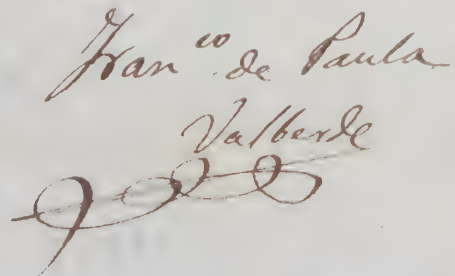 Fran.co de Paula
Valberde